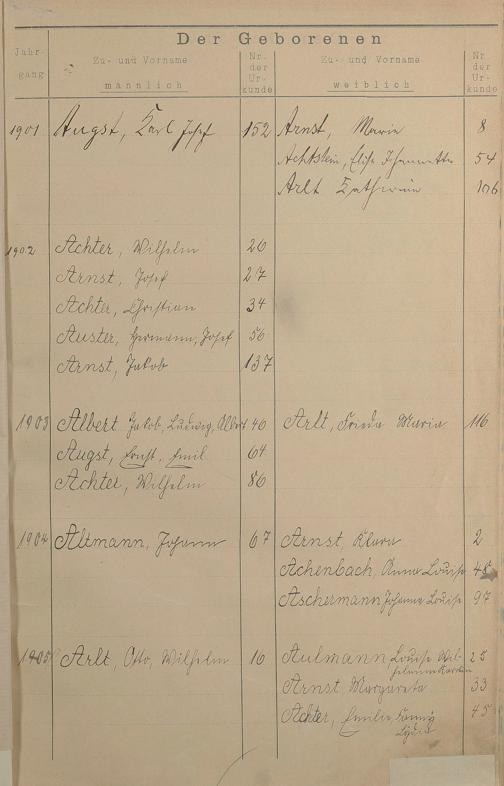 Der Geborenen
Jahrgang Zu- und Vorname männlich Nr. der Urkunde Zu- und Vorname weiblich Nr. der Urkunde
1901 Augst, Karl Josef 152 Arnst, Maria 8
Achtstein, Elise Johannetta 54
Arlt Katharina 106
1902 Achter, Wilhelm 26
Arnst, Josef 27
Achter, Christian 34
Auster, Hermann, Josef 56
Arnst, Jakob 137
1903 Albert Jakob, Ludwig, Albert 40 Arlt, Frieda Maria 116
Augst, Ernst, Emil 64
Achter, Wilhelm 86
1904 Altmann, Johann 67 Arnst, Klara 2
Achenbach, Anna Louise 45
Aschermann Johanna Louise 97
1905 Arlt, Otto, Wilhelm 10 Aulmann Louise Wil- 25
helmine
Arnst, Margareta 33
Achter, Emilie, Fanny 45
Lydia